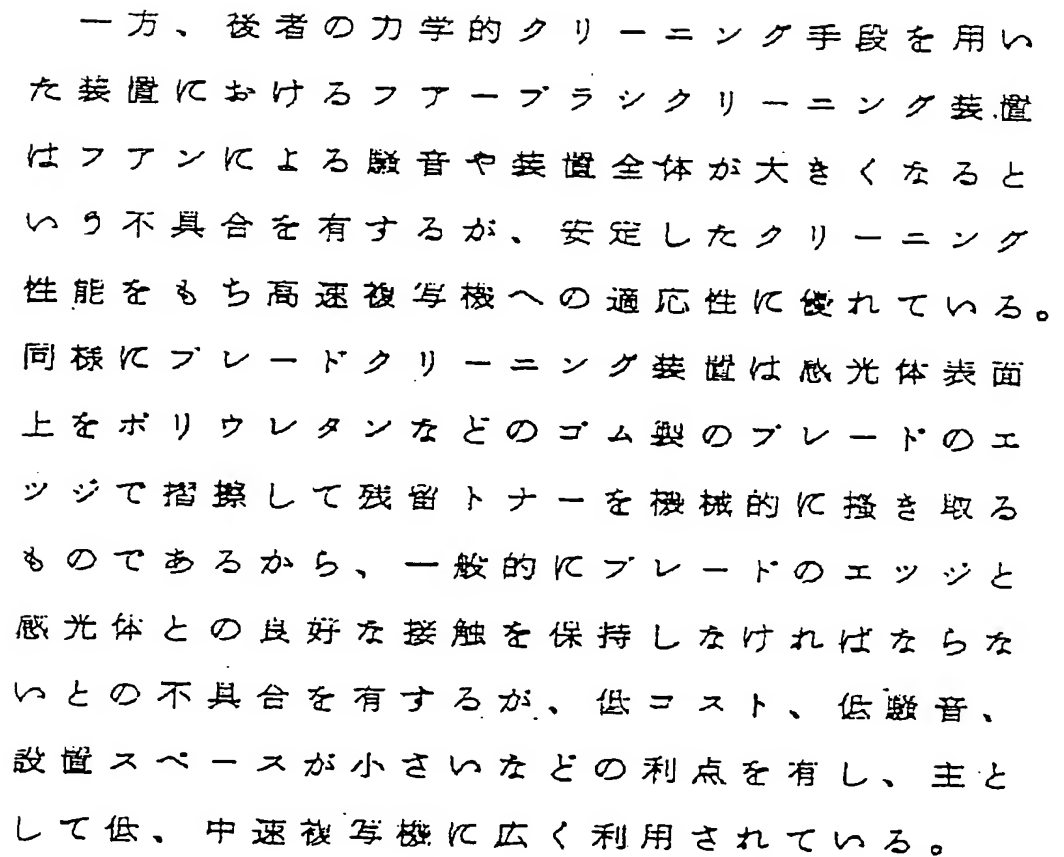 一方、後者の力学的クリーニング手段を用い
た装置におけるファーブラシクリーニング装置
はファンによる騒音や装置全体が大きくなると
いう不具合を有するが、安定したクリーニング
性能をもち高速複写機への適応性に優れている。
同様にブレードクリーニング装置は感光体表面
上をポリウレタンなどのゴム製のブレードのエ
ッジで摺擦して残留トナーを機械的に掻き取る
ものであるから、一般的にブレードのエッジと
感光体との良好な接触を保持しなければならな
いとの不具合を有するが、低コスト、低騒音、
設置スペースが小さいなどの利点を有し、主と
して低、中速複写機に広く利用されている。